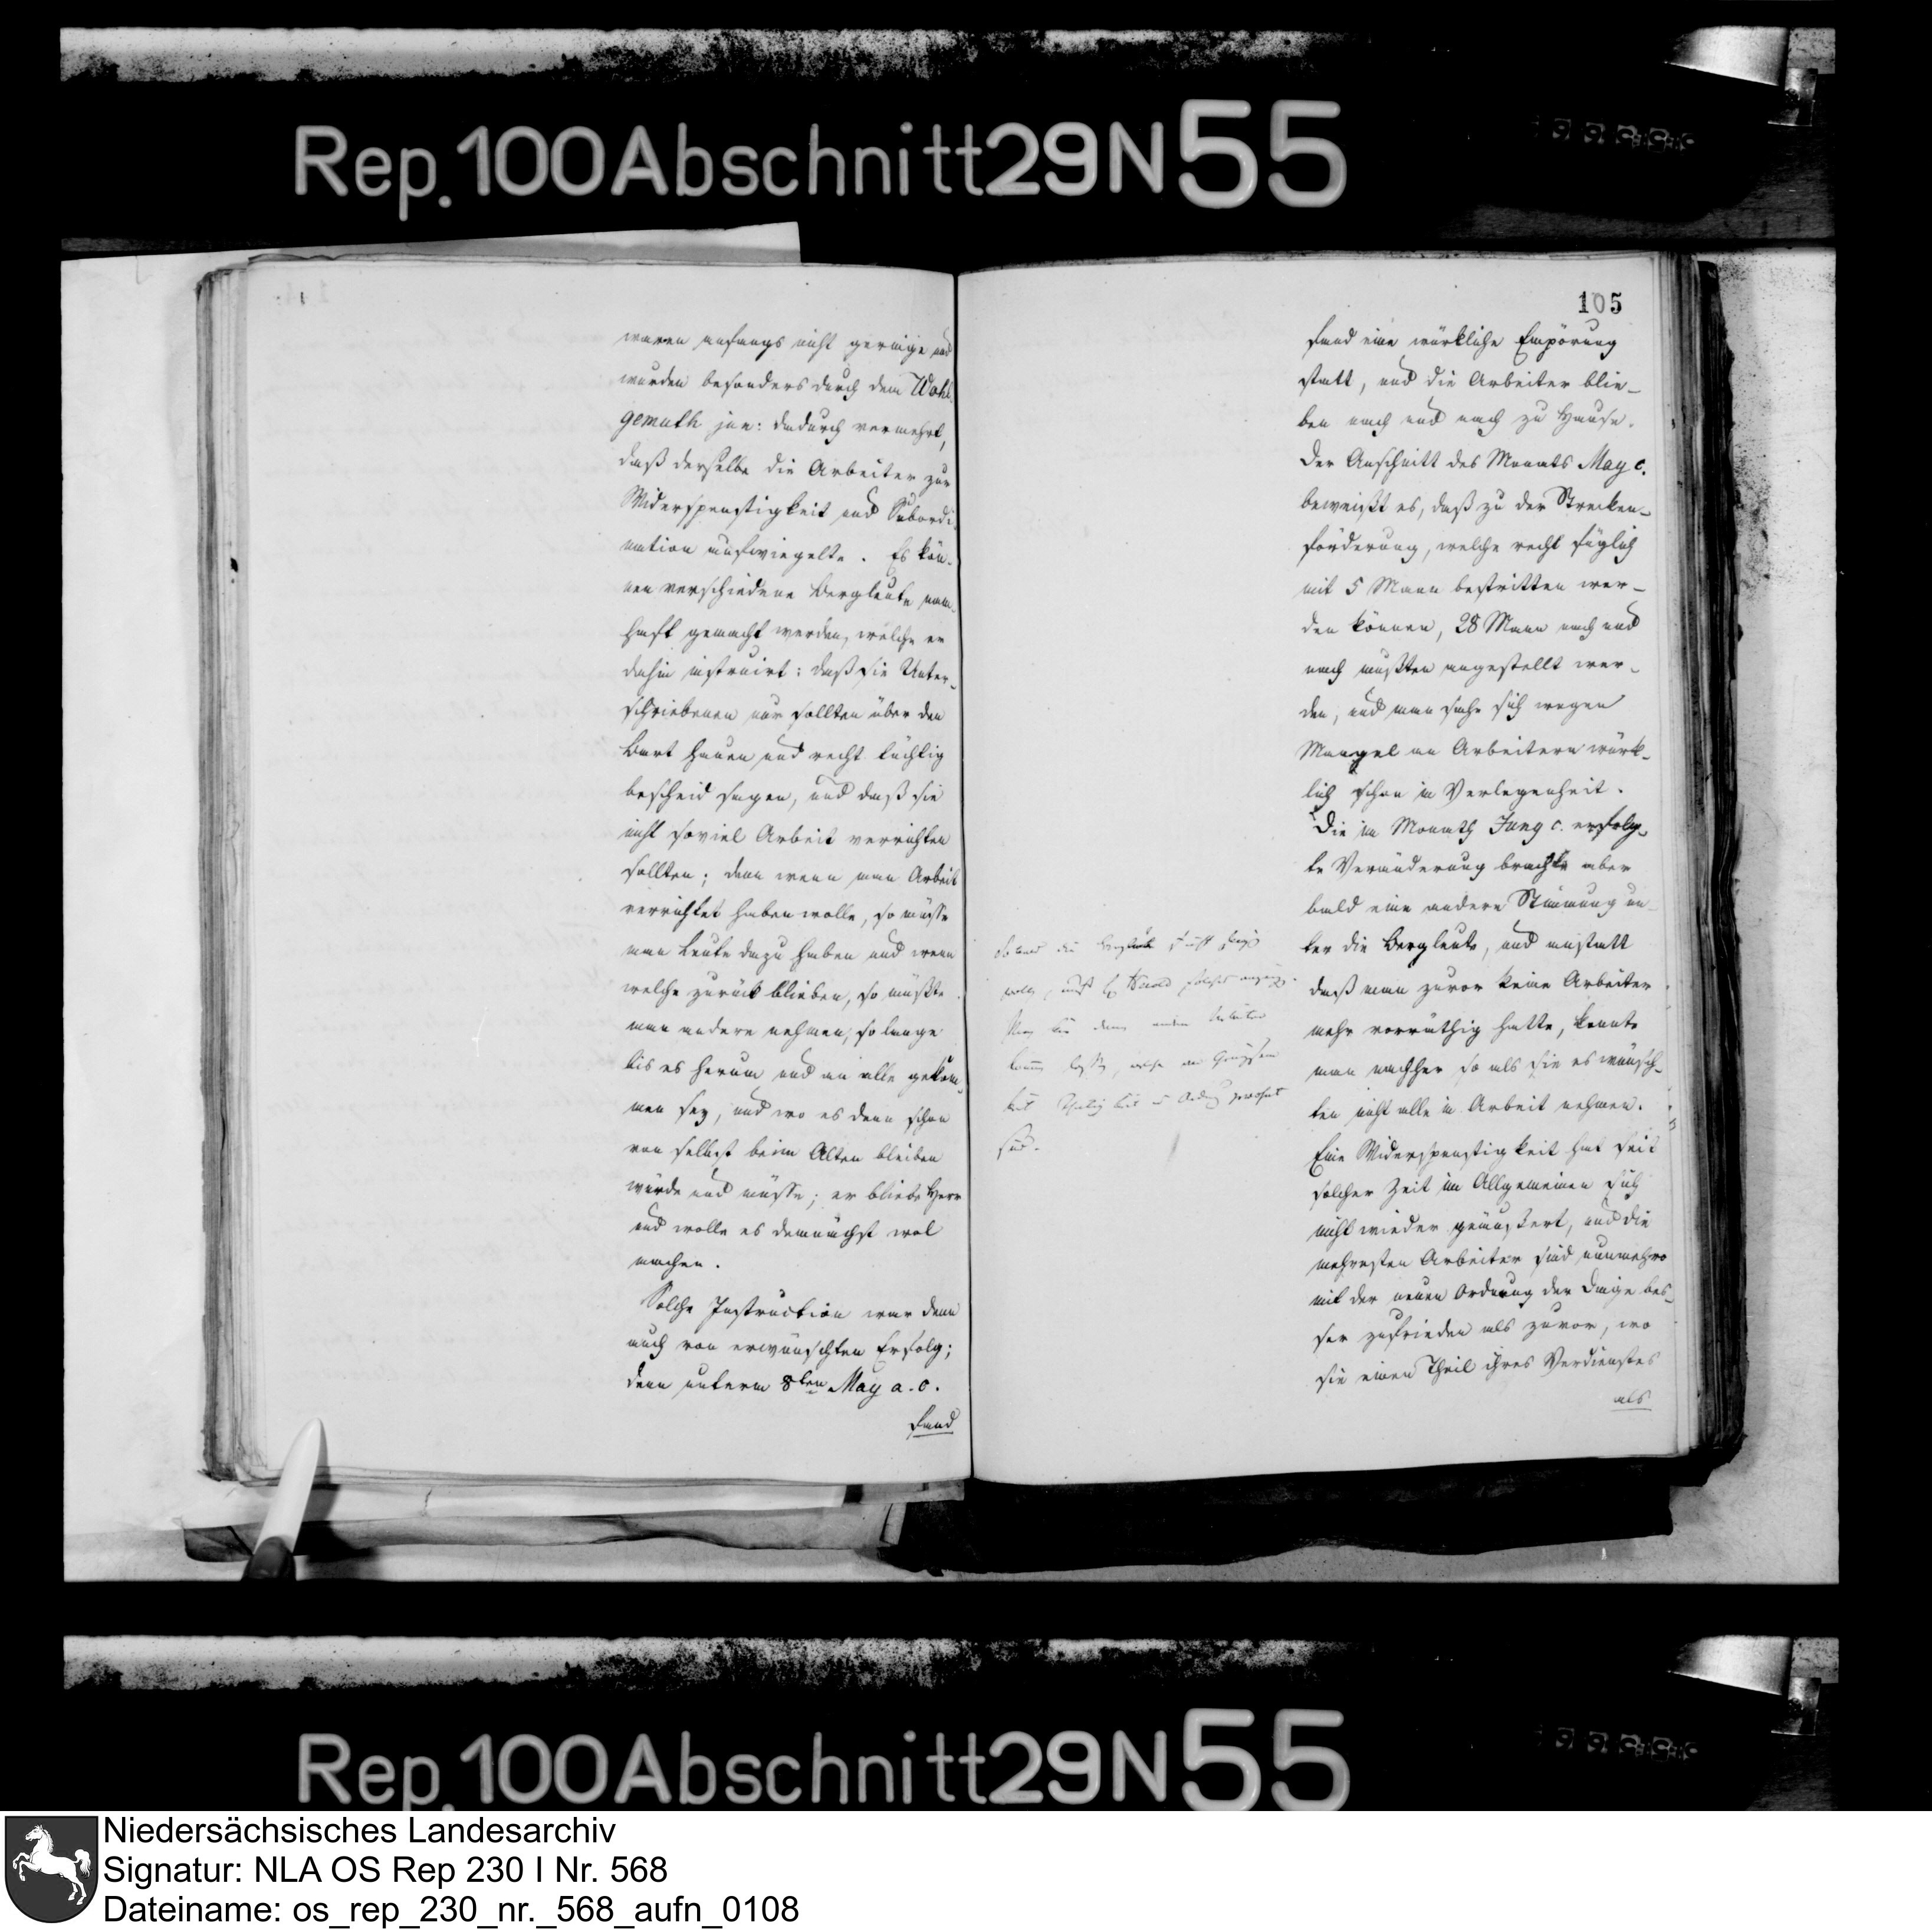 Rep. 100 Abschnitt 29 N 55
waren anfangs nicht geringe und
wurden besonders durch dem Wohl-
gemuth jun: dadurch vermehrt,
daß derselbe die Arbeiter zur
Widerspenstigkeit und Subordi-
nation aufwiegelte. Es kön-
nen verschiedene Bergleute nam-
haft gemacht werden, welche er
dahin instruirt: daß sie Unter-
schriebenen nur sollten über den
Bart hauen und recht tüchtig
bescheid sagen, und daß sie
nicht soviel Arbeit verrichten
sollten; denn wenn man Arbeit
verrichtet haben wolle, so müsse
man Leute dazu haben und wenn
welche zurück blieben, so müßte
man andere nehmen, so lange
bis es herum und an alle gekom-
men sey, und wo es denn schon
von selbst beim Alten bleiben
würde und müsse; er bliebe Herr
und wolle es demnächst wol
machen.
Solche Instruction war denn
auch von erwünschten Erfolg;
denn unterm 8ten May a. c.
fand
105
fand eine würkliche Empörung
statt, und die Arbeiter blie-
ben nach und nach zu Hause.
Der Anschnitt des Monats May c.
beweißt es, daß zu der Strecken-
förderung, welche recht füglich
mit 5 Mann bestritten wer-
den können, 28 Mann nach und
nach mußten angestellt wer-
den, und man sahe sich wegen
Mangel an Arbeitern würk-
lich schon in Verlegenheit.
Die im Monath Juny c. erfolg-
te Veränderung brachte aber
bald eine andere Stimmung un-
ter die Bergleute, und anstatt
daß man zuvor keine Arbeiter
mehr vorräthig hatte, konnte
man nachher so als sie es wünsch-
ten nicht alle in Arbeit nehmen.
Eine Widerspenstigkeit hat seit
solcher Zeit im Allgemeinen sich
nicht wieder geäußert, und die
mehresten Arbeiter sind nunmehro
mit der neuen Ordnung der Dinge bes-
ser zufrieden als zuvor, wo
sie einen Theil ihres Verdienstes
als
Rep. 100 Abschnitt 29 N 55
Niedersächsisches Landesarchiv
Signatur: NLA OS Rep 230 I Nr. 568
Dateiname: os_rep_230_nr._568_aufn_0108